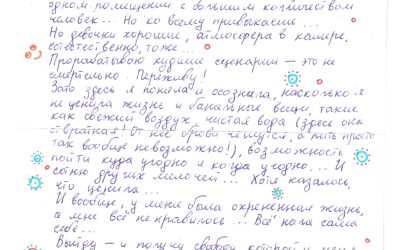 одном помещении с большим количеством
человек... Но ко всему привыкаешь...
Но девочки хорошие, атмосфера в камере,
естественно, тоже...
Прорабатываю худшие сценарии — это не
смертельно. Переживу!
Зато здесь я поняла и осознала, насколько я
не ценила жизнь и банальные вещи, такие
как свежий воздух, чистая вода (здесь она
отвратная! От неё брови чешутся, а пить просто
так вообще невозможно!), возможность
пойти куда угодно и когда угодно... И
сотню других мелочей... Хотя казалось,
что ценила...
И вообще, у меня была охрененная жизнь,
а мне всё не нравилось... Всё
себе...
Выйду — и